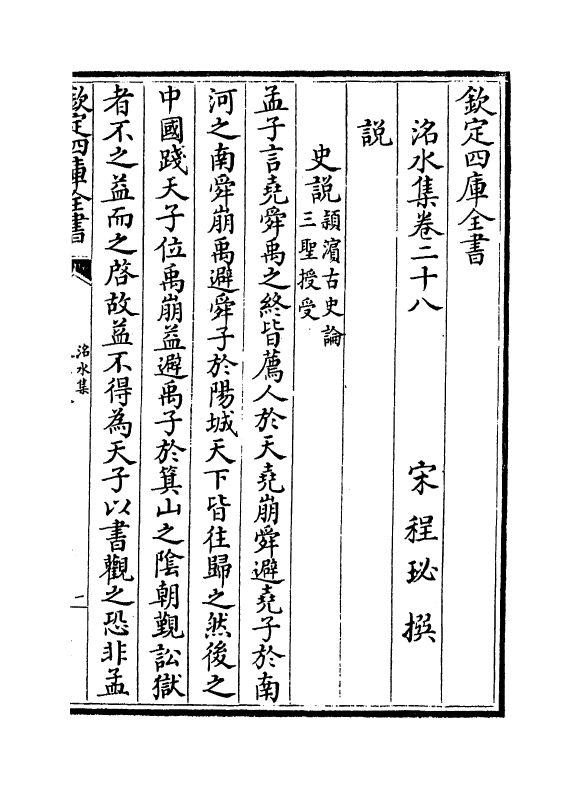 欽定四庫全書
洺水集卷二十八
宋程珌撰
説
史説
潁濵古史論
三聖授受
孟子言堯舜禹之終皆薦人於天堯崩舜避堯子於南
河之南舜崩禹避舜子於陽城天下皆往歸之然後之
中國踐天子位禹崩益避禹子於箕山之陰朝覲訟獄
者不之益而之啓故益不得為天子以書觀之恐非孟
欽定四庫全書
洺水集
一